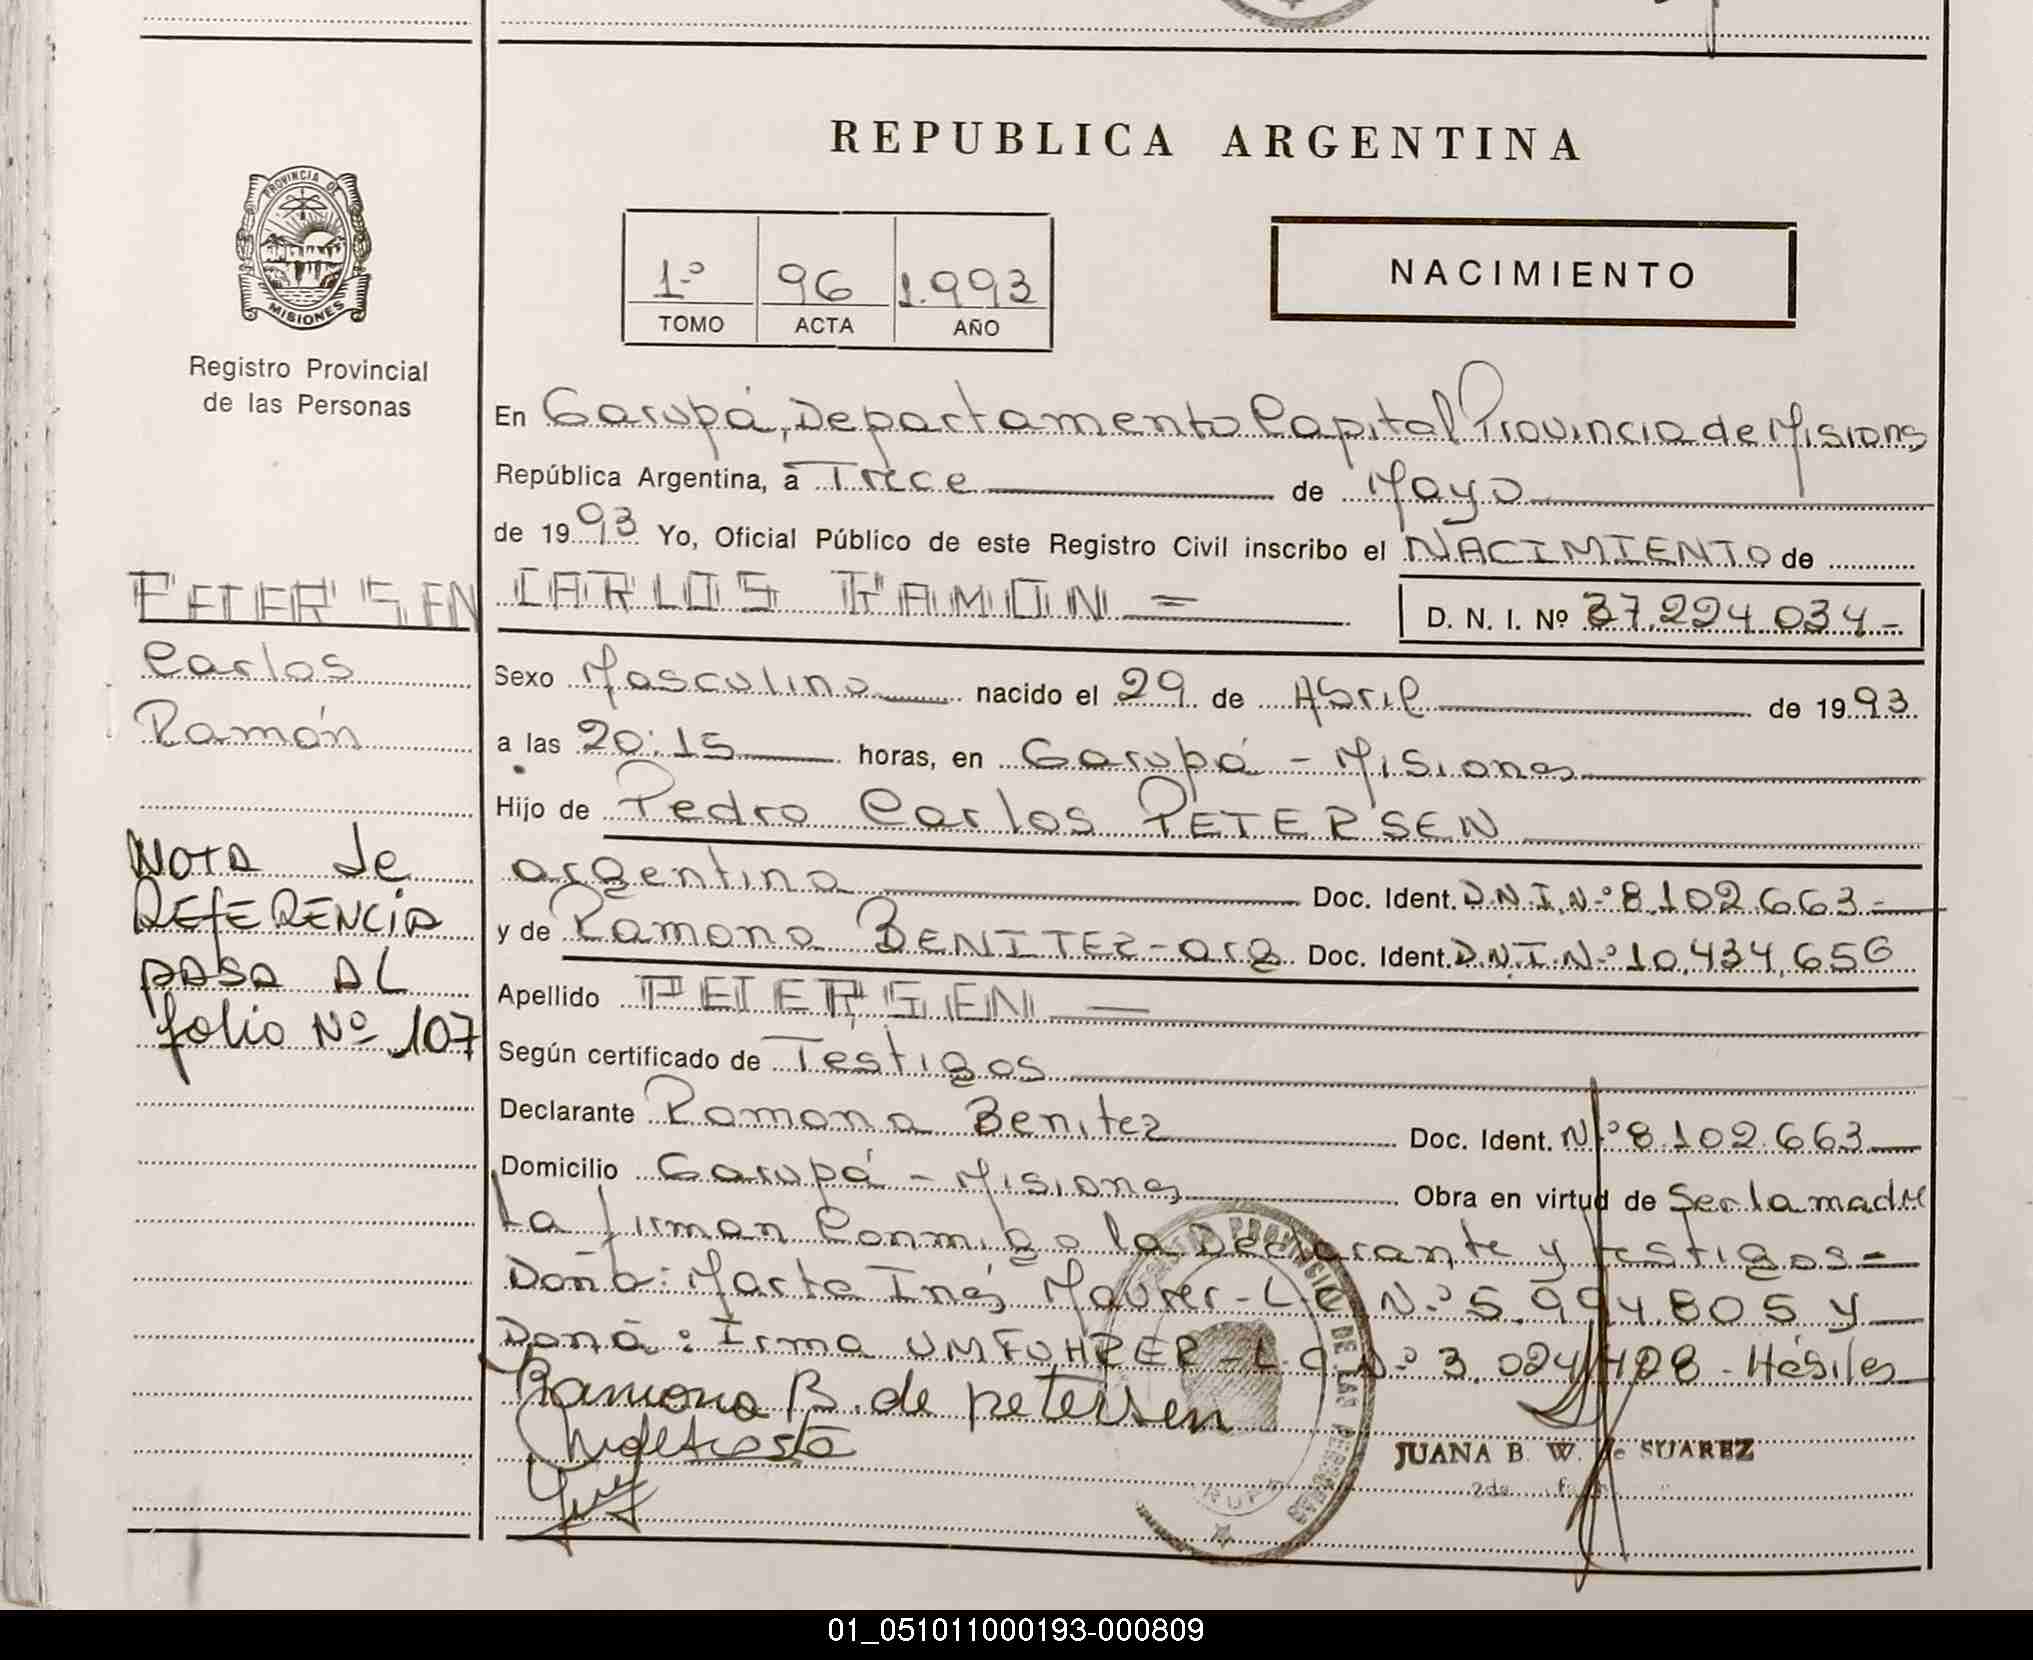 REPUBLICA ARGENTINA
PROVINCIA DE
MISIONES
Registro Provincial
de las Personas
1º 96 1.993
TOMO ACTA AÑO
NACIMIENTO
En Garupá, Departamento Capital Provincia de Misiones
República Argentina, a Trece de Mayo
de 1993 Yo, Oficial Público de este Registro Civil inscribo el NACIMIENTO de
PETERSEN CARLOS RAMON =
D. N. I. Nº 37.224.034-
Carlos
Ramón
Sexo Masculino nacido el 29 de Abril de 1993
a las 20:15 horas, en Garupá - Misiones
Hijo de Pedro Carlos PETERSEN
argentino Doc. Ident. D.N.I.Nº 8.102.663-
y de Ramona BENITEZ-arg Doc. Ident. D.N.I.Nº 10.434.656
NOTA de
REfERENCiA
pASA AL
folio Nº 107
Apellido PETERSEN —
Según certificado de Testigos
Declarante Ramona Benitez Doc. Ident. Nº 8.102.663
Domicilio Garupá - Misiones Obra en virtud de Ser la madre
La firman Conmigo la Declarante y testigos=
Doña: Marta Inés Maurer-L.C. Nº 5.994.805 y
Doña: Irma UMFUHRER-L.C. Nº 3.024.428 - Hábiles
Ramona B. de petersen
JUANA B. W. de SUAREZ
DE LAS PERSONAS
01_051011000193-000809